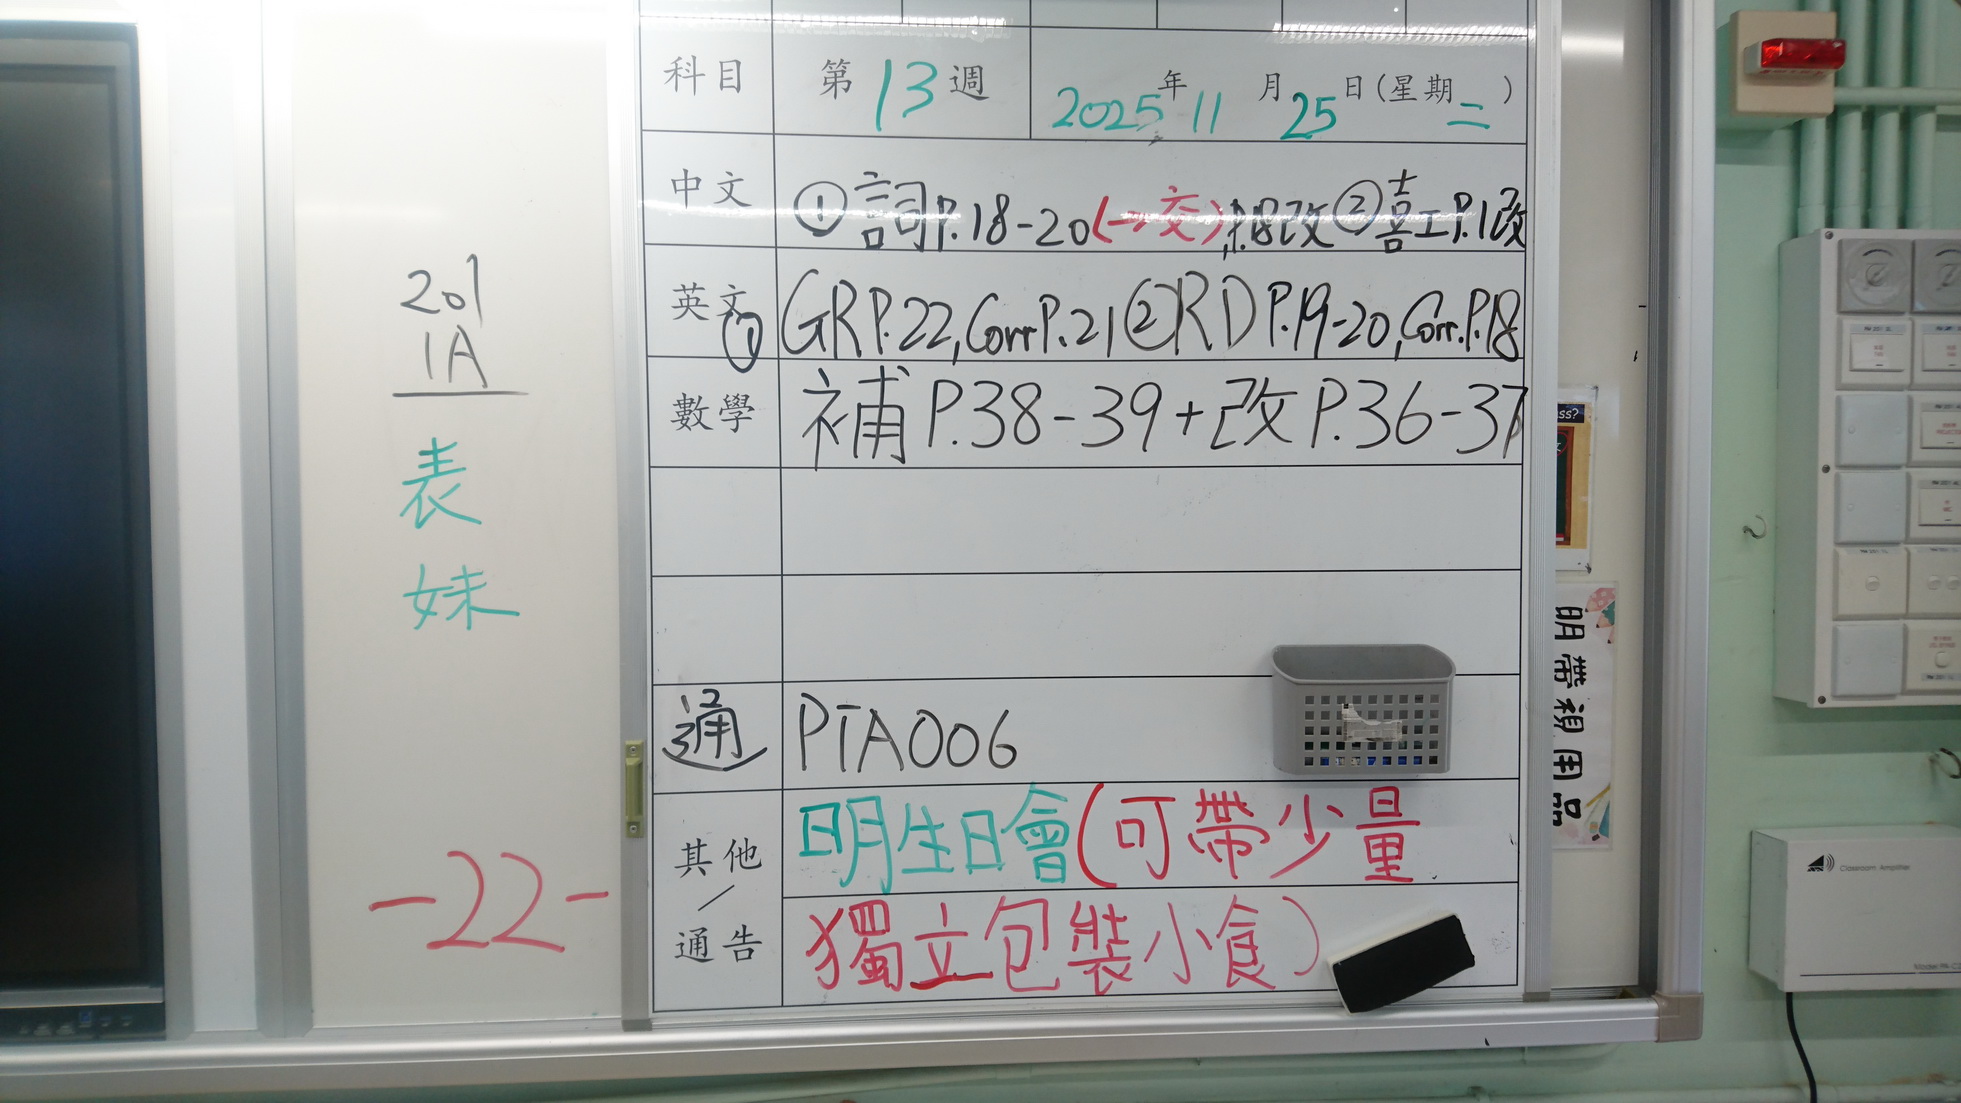 201
1A
表
妹
-22-
科目 第13週 2025年11月25日(星期二)
中文 ①詞P.18-20(→交),改②喜工P.1改
英文 ①GR P.22,Corr.P.21②RD P.19-20,Corr.P.18
數學 補P.38-39+改P.36-37
通 PTA006
其他/通告 明生日會(可帶少量
獨立包裝小食)
ss?
明帶視用品
Classroom Amplifier